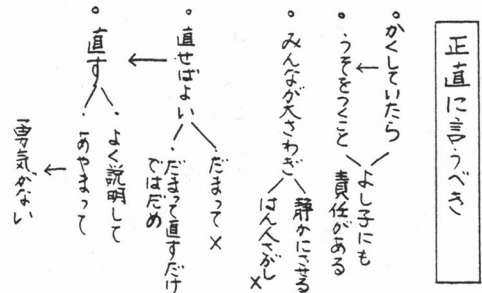 正直に言うべき
。かくしていたら
。うそをつくこと
よし子にも
責任がある
。みんなが大さわぎ
静かにさせる
はん人さがし×
。直せばよい
だまって×
・だまって直すだけ
ではだめ
。直す
・よく説明して
・あやまって
勇気がない